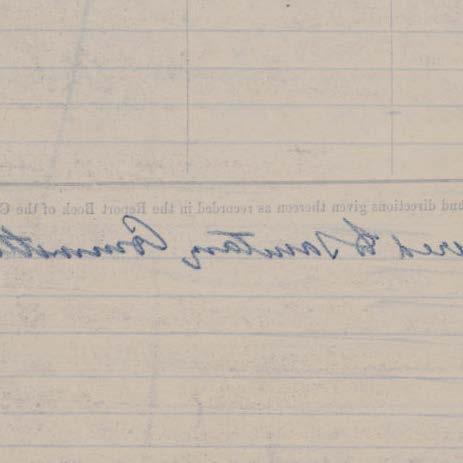 and directions given thereon as recorded in the Report Book of the C
erred to Sanitary Committe